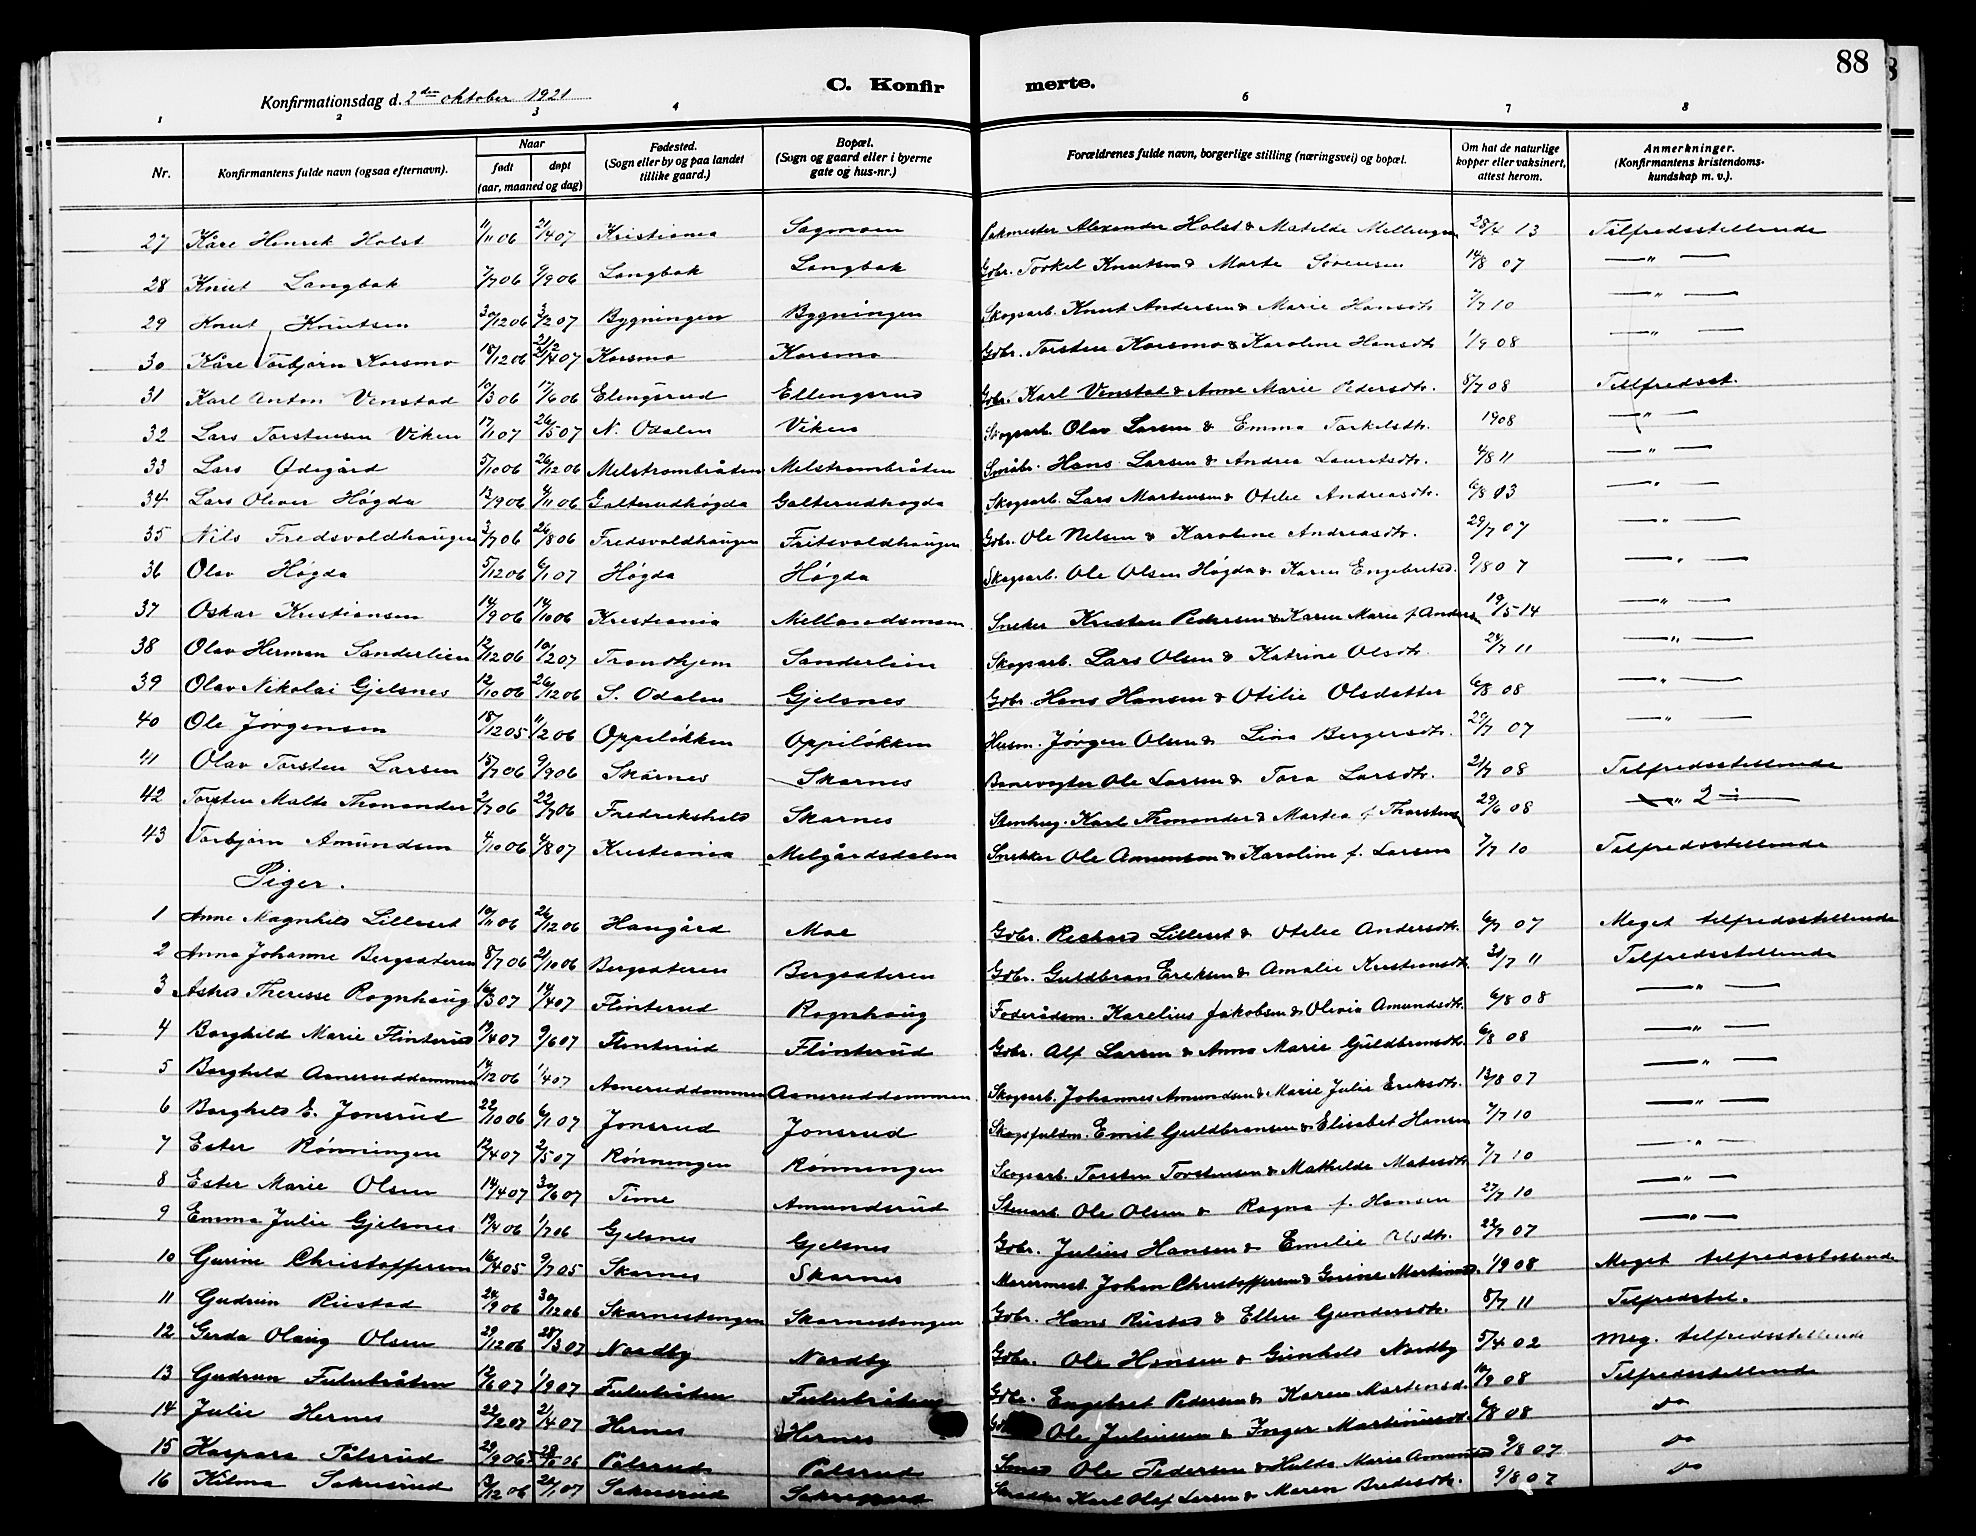 88
C. Konfirmerte.
Konfirmationsdag d. 2den oktober 1921
1 2 3 4 6 7 8
Nr. Konfirmantens fulde navn (ogsaa efternavn). Naar født døpt (aar, maaned og dag) Fødested. (Sogn eller by og paa landet tillike gaard.) Bopæl. (Sogn og gaard eller i byerne gate og hus-nr.) Forældrenes fulde navn, borgerlige stilling (næringsvei) og bopæl. Om hat de naturlige kopper eller vaksinert, attest herom. Anmerkninger. (Konfirmantens kristendomskundskap m. v.).
27 Kåre Henrik Holst 11/11 06 2/4 07 Kristiania Sagmoen Alexander Holst & Matilde 28/4 13 Tilfredsstillende
28 Knut Langbak 7/7 06 9/9 06 Langbak Langbak Gbr. Torkel Knutsen & Marte Sørensen 14/8 07 —"—
29 Knut Knutsen 30/12 06 3/2 07 Bygningen Bygningen Skogsarb. Knut Andersen & Marie Hansdtr. 7/7 10 —"—
30 Kåre Torbjørn Korsmo 18/12 06 21/4 07 Korsmo Korsmo Gbr. Torsten Korsmo & Karoline Hansdtr 1/9 08 —"—
31 Karl Anton Venstad 10/3 06 17/6 06 Elingsrud Ellingsrud Gbr. Karl Venstad & Anne Marie Pedersdtr. 8/7 08 Tilfredsst.
32 Lars Torstensen Viken 17/1 07 26/5 07 N. Odalen Viken Skogsarb. Olav Larsen & Emma Torkelsdtr. 1908 —"—
33 Lars Ødegård 5/10 06 26/12 06 Melstrombråten Melstrombråten Småbr. Hans Larsen & Andrea Lauritsdtr. 4/8 11 —"—
34 Lars Oliver Høgda 13/9 06 4/11 06 Galterudhøgda Galterudhøgda Skogsarb. Lars Martinsen & Otilie Andreasdtr. 6/8 13 —"—
35 Nils Fredsvoldhaugen 3/7 06 26/8 06 Fredsvoldhaugen Fritsvoldhaugen Gbr. Ole Nelsen & Karoline Andreasdtr. 29/7 07 —"—
36 Olav Høgda 5/12 06 6/1 07 Høgda Høgda Skogsarb. Ole Olsen Høgda & Karen Engebretsd. 9/8 07 —"—
37 Oskar Kristiansen 14/9 06 14/10 06 Kristiania Snekker Kristen Pedersen & Karen Marie f. Anders 19/5 14 —"—
38 Olav Herman Sanderlien 12/12 06 10/2 07 Trondhjem Sanderlien Skogsarb. Lars Olsen & Katrine Olsdtr. 28/7 11 —"—
39 Olav Nikolai Gjelsnes 12/10 06 26/12 06 S. Odalen Gjelsnes Gbr. Hans Hansen & Otilie Olsdatter 6/8 08 —"—
40 Ole Jørgensen 18/12 05 11/2 06 Oppiløkken Oppiløkken Husm. Jørgen Olsen & Lina Bergersdtr. 29/7 07 —"—
41 Olav Torsten Larsen 15/7 06 9/9 06 Skarnes Skarnes Banevogter Ole Larsen & Tora Larsdtr. 21/7 08 Tilfredsstillende
42 Torsten Malte Thonander 2/7 06 22/7 06 Fredrikshald Skarnes Stenhug. Karl Thonander & Martea f. Thorstens 29/6 08 —"— 2
43 Torbjørn Amundsen 4/10 06 4/8 07 Kristiania Melgårdsdalen Snekker Ole Amundsen & Karoline f. Larsen 7/7 10 Tilfredsstillende
Piger.
1 Anne Magnhild Lilleset 10/11 06 26/12 06 Haugård Moe Gbr. Richard Lilleset & Otelie Andersdtr. 6/7 07 Meget tilfredsstillende
2 Anna Johanne Bergsæteren 8/7 06 21/10 06 Bergsæteren Bergsæteren Gbr. Guldbran Eriksen & Amalie Kristiansdtr. 31/7 11 Tilfredsstillende
3 Astrid Therese Rognhaug 16/3 07 14/4 07 Flinterud Rognhaug Føderådsm. Karelius Jakobsen & Olivia Amundsdtr. 6/8 08 —"—
4 Borghild Marie Flinterud 19/4 07 9/6 07 Flinterud Flinterud Gbr. Alf Larsen & Anna Marie Guldbrandsdtr. 6/8 08 —"—
5 Borghild Asneruddammen 19/12 06 1/4 07 Asneruddammen Asneruddammen Skogsarb. Johannes Amundsen & Marie Julie Eriksdtr. 13/8 07 —"—
6 Borghild E. Jonsrud 22/10 06 6/1 07 Jonsrud Jonsrud Skogsfuldm. Emil Guldbransen & Elisabet Hansen 7/7 10 —"—
7 Ester Rønningen 12/4 07 2/5 07 Rønningen Rønningen Skogsarb. Torsten Torstensen & Mathilde Matisdtr. 7/7 10 —"—
8 Ester Marie Olsen 14/4 07 30/6 07 Time Amundsrud Stenarb. Ole Olsen & Ragna f. Hansen 27/7 10 —"—
9 Emma Julie Gjelsnes 19/4 06 1/7 06 Gjelsnes Gjelsnes Gbr. Julius Hansen & Emilie Olsdtr. 22/7 07 —"—
10 Gurine Christoffersen 16/4 05 9/7 05 Skarnes Skarnes Murermest. Johan Christoffersen & Gurine Martinsd. 1/9 08 Meget tilfredsstillende
11 Gudrun Rustad 24/9 06 30/12 06 Skarnestangen Skarnestangen Gbr. Hans Rustad & Ellen Gundersdtr. 8/7 11 Tilfredstil.
12 Gerda Olaug Olsen 29/12 06 28/3 07 Nordby Nordby Gbr. Ole Hansen & Gunhild Nordby 5/4 02 Meg. tilfredsstillende
13 Gudrun Fulubråten 12/6 07 1/9 07 Fulubråten Fulubråten Gbr. Engebret Pedersen & Karen Martensd. 10/9 08 Tilfredsstillende
14 Julie Hernes 22/2 07 21/4 07 Hernes Hernes Ole Juliussen & Inger Martinusdt. 6/8 08 do
15 Kaspara Pålsrud 29/9 06 Pålsrud Pålsrud Ole Pedersen & Hulda Marie Amunds 9/8 07 do
16 Hilma Sakrisrud 13/12 06 20/1 07 Sakrisrud Karl Olaf Larsen & Maren Bredesdtr. 9/8 07 do